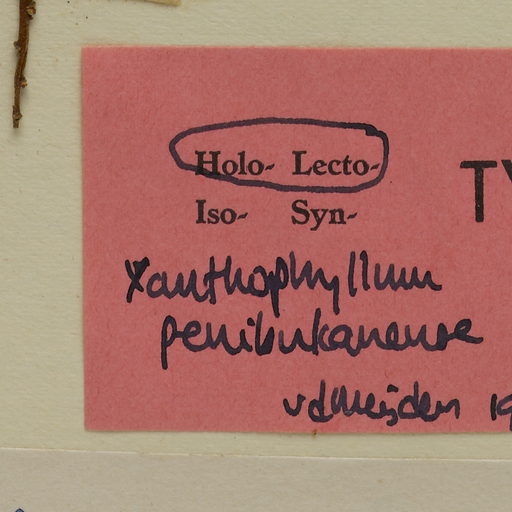 Holo- Lecto-
Iso- Syn- TY
Xanthophyllum
penibukanense
vdMeijden 19